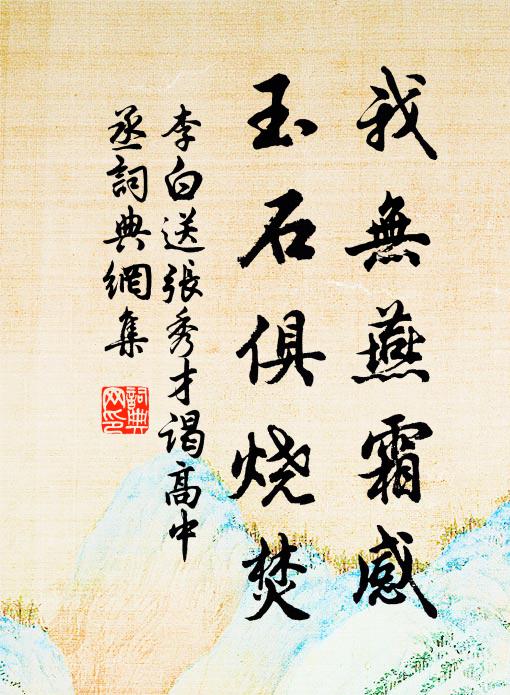 我無燕霜感
玉石俱烧焚
李白送張秀才謁高中
丞詞典網集
詞典网印